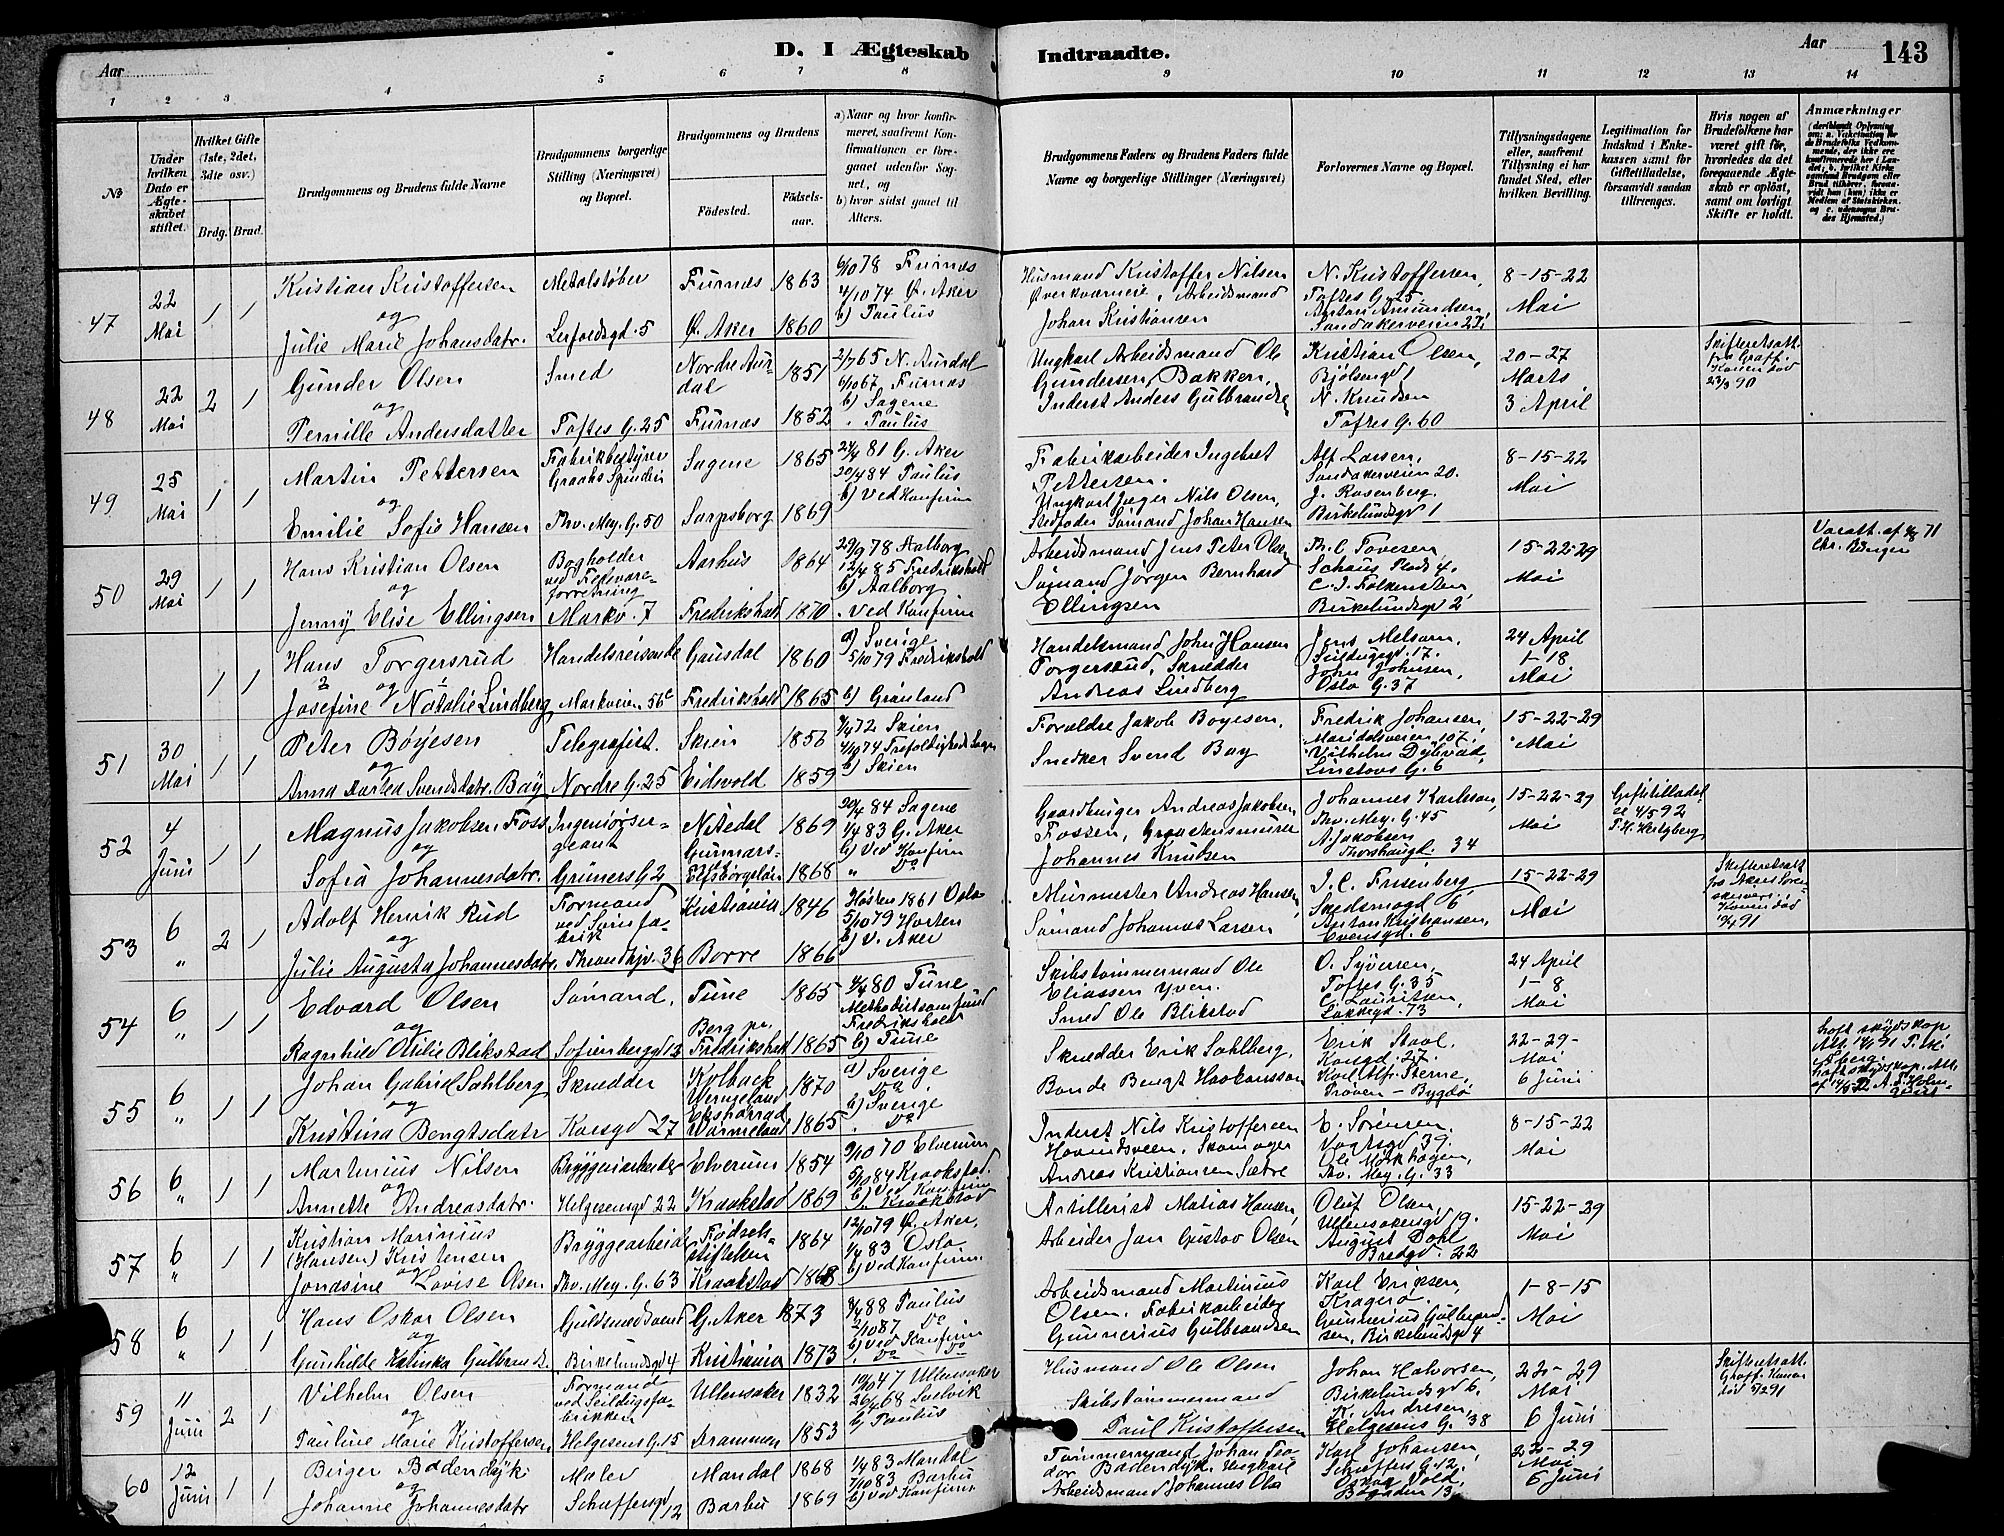 D. I Ægteskab Indtraadte.
Aar
Aar
143
1 2 3 4 5 6 7 8 9 10 11 12 13 14
No
Under hvilken Dato er Ægteskabet stiftet.
Hvilket Gifte (1ste, 2det, 3dte osv.)
Brdg. Brud.
Brudgommens og Brudens fulde Navne
Brudgommens borgerlige Stilling (Næringsvei) og Bopæl.
Brudgommens og Brudens
Fødested.
Fødselsaar.
a) Naar og hvor konfirmeret, saafremt Konfirmationen er foregaaet udenfor Sognet, og
b) hvor sidst gaaet til Alters.
Brudgommens Faders og Brudens Faders fulde Navne og borgerlige Stillinger (Næringsvei)
Forlovernes Navne og Bopæl.
Tillysningsdagene eller, saafremt Tillysning ei har fundet Sted, efter hvilken Bevilling.
Legitimation for Indskud i Enkekassen samt for Giftetilladelse, forsaavidt saadan tiltrænges.
Hvis nogen af Brudefolkene har været gift før, hvorledes da det foregaaende Ægteskab er opløst, samt om lovligt Skifte er holdt.
Anmærkninger
47 22 Mai 1 1
Kristian Kristoffersen og Julie Marie Johansdatr.
Metalstøber
Furnæs 1863
Ø. Aker 1860
6/10 78 Furnæs
4/10 74 Ø. Aker
b) Paulus
Husmand Kristoffer Nilsen
Arbeidsmand
Johan Kristiansen
N. Kristoffersen, Toftes G. 25
Anton Amundsen, Sandakerveien 27
8-15-22 Mai
48 22 Mai 2 1
Gunder Olsen og Pernille Andersdatter
Smed
Toftes G. 25
Nordre Aurdal 1851
Furnæs 1852
2/7 65 N. Aurdal
6/10 67 Furnæs
b) Sagene
" Paulus
Ungkarl Arbeidsmand Ole Gundersen Bakken,
Inderst Anders Gulbrandsen
Kristian Olsen, Bjølsengd 1
N. Knudsen Toftes G. 60
20-27 Marts 3 April
49 25 Mai 1 1
Martin Pettersen og Emilie Sofie Hansen
Fabrikbestyrer Graahs Spinderi
Thv. Mey. G. 50
Sagene 1865
Sarpsborg 1869
24/4 81 G. Aker
20/4 84 Paulus
b) Ved Konfirm
Fabrikarbeider Ingebret Pettersen.
Ungkarl Jæger Nils Olsen,
Stedfader Sømand Johan Hansen
Alf Larsen, Sandakerveien 20.
J. Rosenberg, Birkelundsgd 1
8-15-22 Mai
50 29 Mai 1 1
Hans Kristian Olsen og Jenny Elise Ellingsen
Bogholder ved Fedevareforretning
Markv. 7
Aarhus 1864
Fredrikshald 1870
29/9 78 Aalborg
12/4 85 Fredrikshald
b) Aalborg
" Ved Konfirm
Arbeidsmand Jens Peter Olsen
Sømand Jørgen Bernhard Ellingsen
Th. C. Tovesen, Schous Plads 4.
C. I. Falkensten Birkelundsgd 2
15-22-29 Mai
1 1
Hans Torgersrud og Josefine Natalie Lindberg
Handelsreisende
Markveien 56 c
Gausdal 1860
Fredrikshald 1865
a) Sverige
5/10 79 Fredrikshald
b) Grønland
Handelsmand Johan Hansen Torgersrud, Skrædder
Andreas Lindberg
Jens Melsom, Seildugsgd. 17.
John Johnsen, Oslo G. 37
24 April 1-18 Mai
51 30 Mai 1 1
Peter Bøyesen og Anna Karstea Svendsdatr. Bøy
Telegrafist.
Nordre G. 25
Skien 1856
Eidsvold 1859
7/4 72 Skien
4/10 74 Trefoldigheds Sogn
b) Skien
Forvaldre Jakob Boyesen.
Snedker Svend Bøy
Fredrik Johansen, Maridalsveien 107.
Vilhelm Dybvad, Linstows G. 6
15-22-29 Mai
52 4 Juni 1 1
Magnus Jakobsen Foss og Sofia Johannesdatr.
Ingeniørsergeant
Grünersg 2
Nitedal 1869
Elfsborgslän 1868
20/4 84 Sagene
1/4 83 G. Aker
b) Ved Konfirm
" Do
Gaardbruger Andreas Jakobsen Fossen,
Johannes Knudsen
Johannes Karlsson, Thv. Mey. G. 45
A Jakobsen Thorshaugd. 34
15-22-29 Mai
Giftetilladelse 4/5 92 T. H. Hertzberg
53 6 " 2 1
Adolf Henrik Rud og Julie Augusta Johannesdatr.
Formand ved Spigerfabrik
Throndhjv. 36
Kristiania 1846
Borre 1866
Høsten 1861 Oslo
5/10 79 Horten
b) V. Aker
Murmester Andreas Hansen,
Sømand Johannes Larsen
I. C. Frisenberg Skedsmogd 6
Anton Kristiansen, Evensgd. 6
15-22-29 Mai
54 6 " 1 1
Edvard Olsen og Ragnhild Otilie Blikstad
Sømand,
Sofienberggd 13
Tune 1865
Berg pr. Fredrikshald 1865
4/4 80 Tune
Methodistsamfund Fredrikshald
b) Tune
Skibstømmermand Ole Eliassen Yven.
Smed Ole Blikstad
O. Syversen, Toftes G. 35
C. Lauritsen, Lakkegd. 73
24 April 1-8 Mai
55 6 " 1 1
Johan Gabriel Sahlberg og Kristina Bengtsdatr
Skrædder
Korsgd 27
Kolback 1870
Wärmeland 1865
a) Sverige
" Do
b) Sverige
" Do
Skrædder Erik Sahlberg,
Bonde Bengt Haakansson
Erik Staal, Korsgd. 27.
Karl Alfr. Sterne, Prøven - Bygdø
22-29- Mai 6 Juni
56 6 " 1 1
Martinius Nilsen og Annette Andreasdatr.
Bryggeriarbeider
Helgesensgd 22
Elverum 1854
Kraakstad 1869
9/10 70 Elverum
5/10 84 Kraakstad.
b) Ved Konfirm
" Kraakstad
Inderst Nils Kristoffersen
Hovindsveen, Skomager
Andreas Kristiansen Sætre
E. Sørensen, Vogtsgd 39.
Ole Mørkhagen, Thv. Mey. G. 33
8-15-22 Mai
57 6 " 1 1
Kristian Marinius (Hansen) Kristensen og Jonasine Lovise Olsen
Bryggearbeider
Thv. Mey. G. 63
Fødselsstiftelsen 1864
Kraakstad 1868
12/10 79 Ø. Aker,
1/4 83 Oslo
b) Ved Konfirm.
Artillerist Matias Hansen,
Arbeider Jan Gustav Olsen
Oluf Olsen, Ullensakersgd 19.
August Dahl Bredgd. 22
15-22-29 Mai
58 6 " 1 1
Hans Oskar Olsen og Gunhilde Kalinka Gulbrands.
Guldsmedsvend
Birkelundsgd 4
G. Aker 1873
Kristiania 1873
8/4 88 Paulus
2/10 87 Do
b) Ved Konfirm
" Do Do
Arbeidsmand Martinius Olsen, Fabrikarbeider
Gunnerius Gulbrandsen
Karl Eriksen, Kragerø.
Gunnerius Gulbrandsen, Birkelundsgd 4
1-8-15 Mai
59 11 Juni 2 1
Vilhelm Olsen og Pauline Marie Kristoffersen
Formand ved Seildugsfabrikken
Helgesens G. 15
Ullensaker 1832
Drammen 1853
10/10 47 Ullensaker
26/4 68 Svelvik
b) Paulus
Husmand Ole Olsen
Skibstømmermand
Paul Kristoffersen
Johan Halvorsen, Birkelundsgd 6.
K. Andresen, Helgesens G. 38
22-29 Mai 6 Juni
60 12 Juni 1 1
Birger Bodendyk og Johanne Johannesdatr
Maler
Schæffersgd 12
Mandal 1868
Barbu 1869
1/4 83 Mandal
7/10 83 Barbu
b) Ved Konfirm
Tømmermand Johan Teodor Bodendyk. Ungkarl
Arbeidsmand Johannes Olsen
Karl Johansen, Schæffers G. 12.
Oskar Vold, Bogaden 13
22-29 Mai 6 Juni